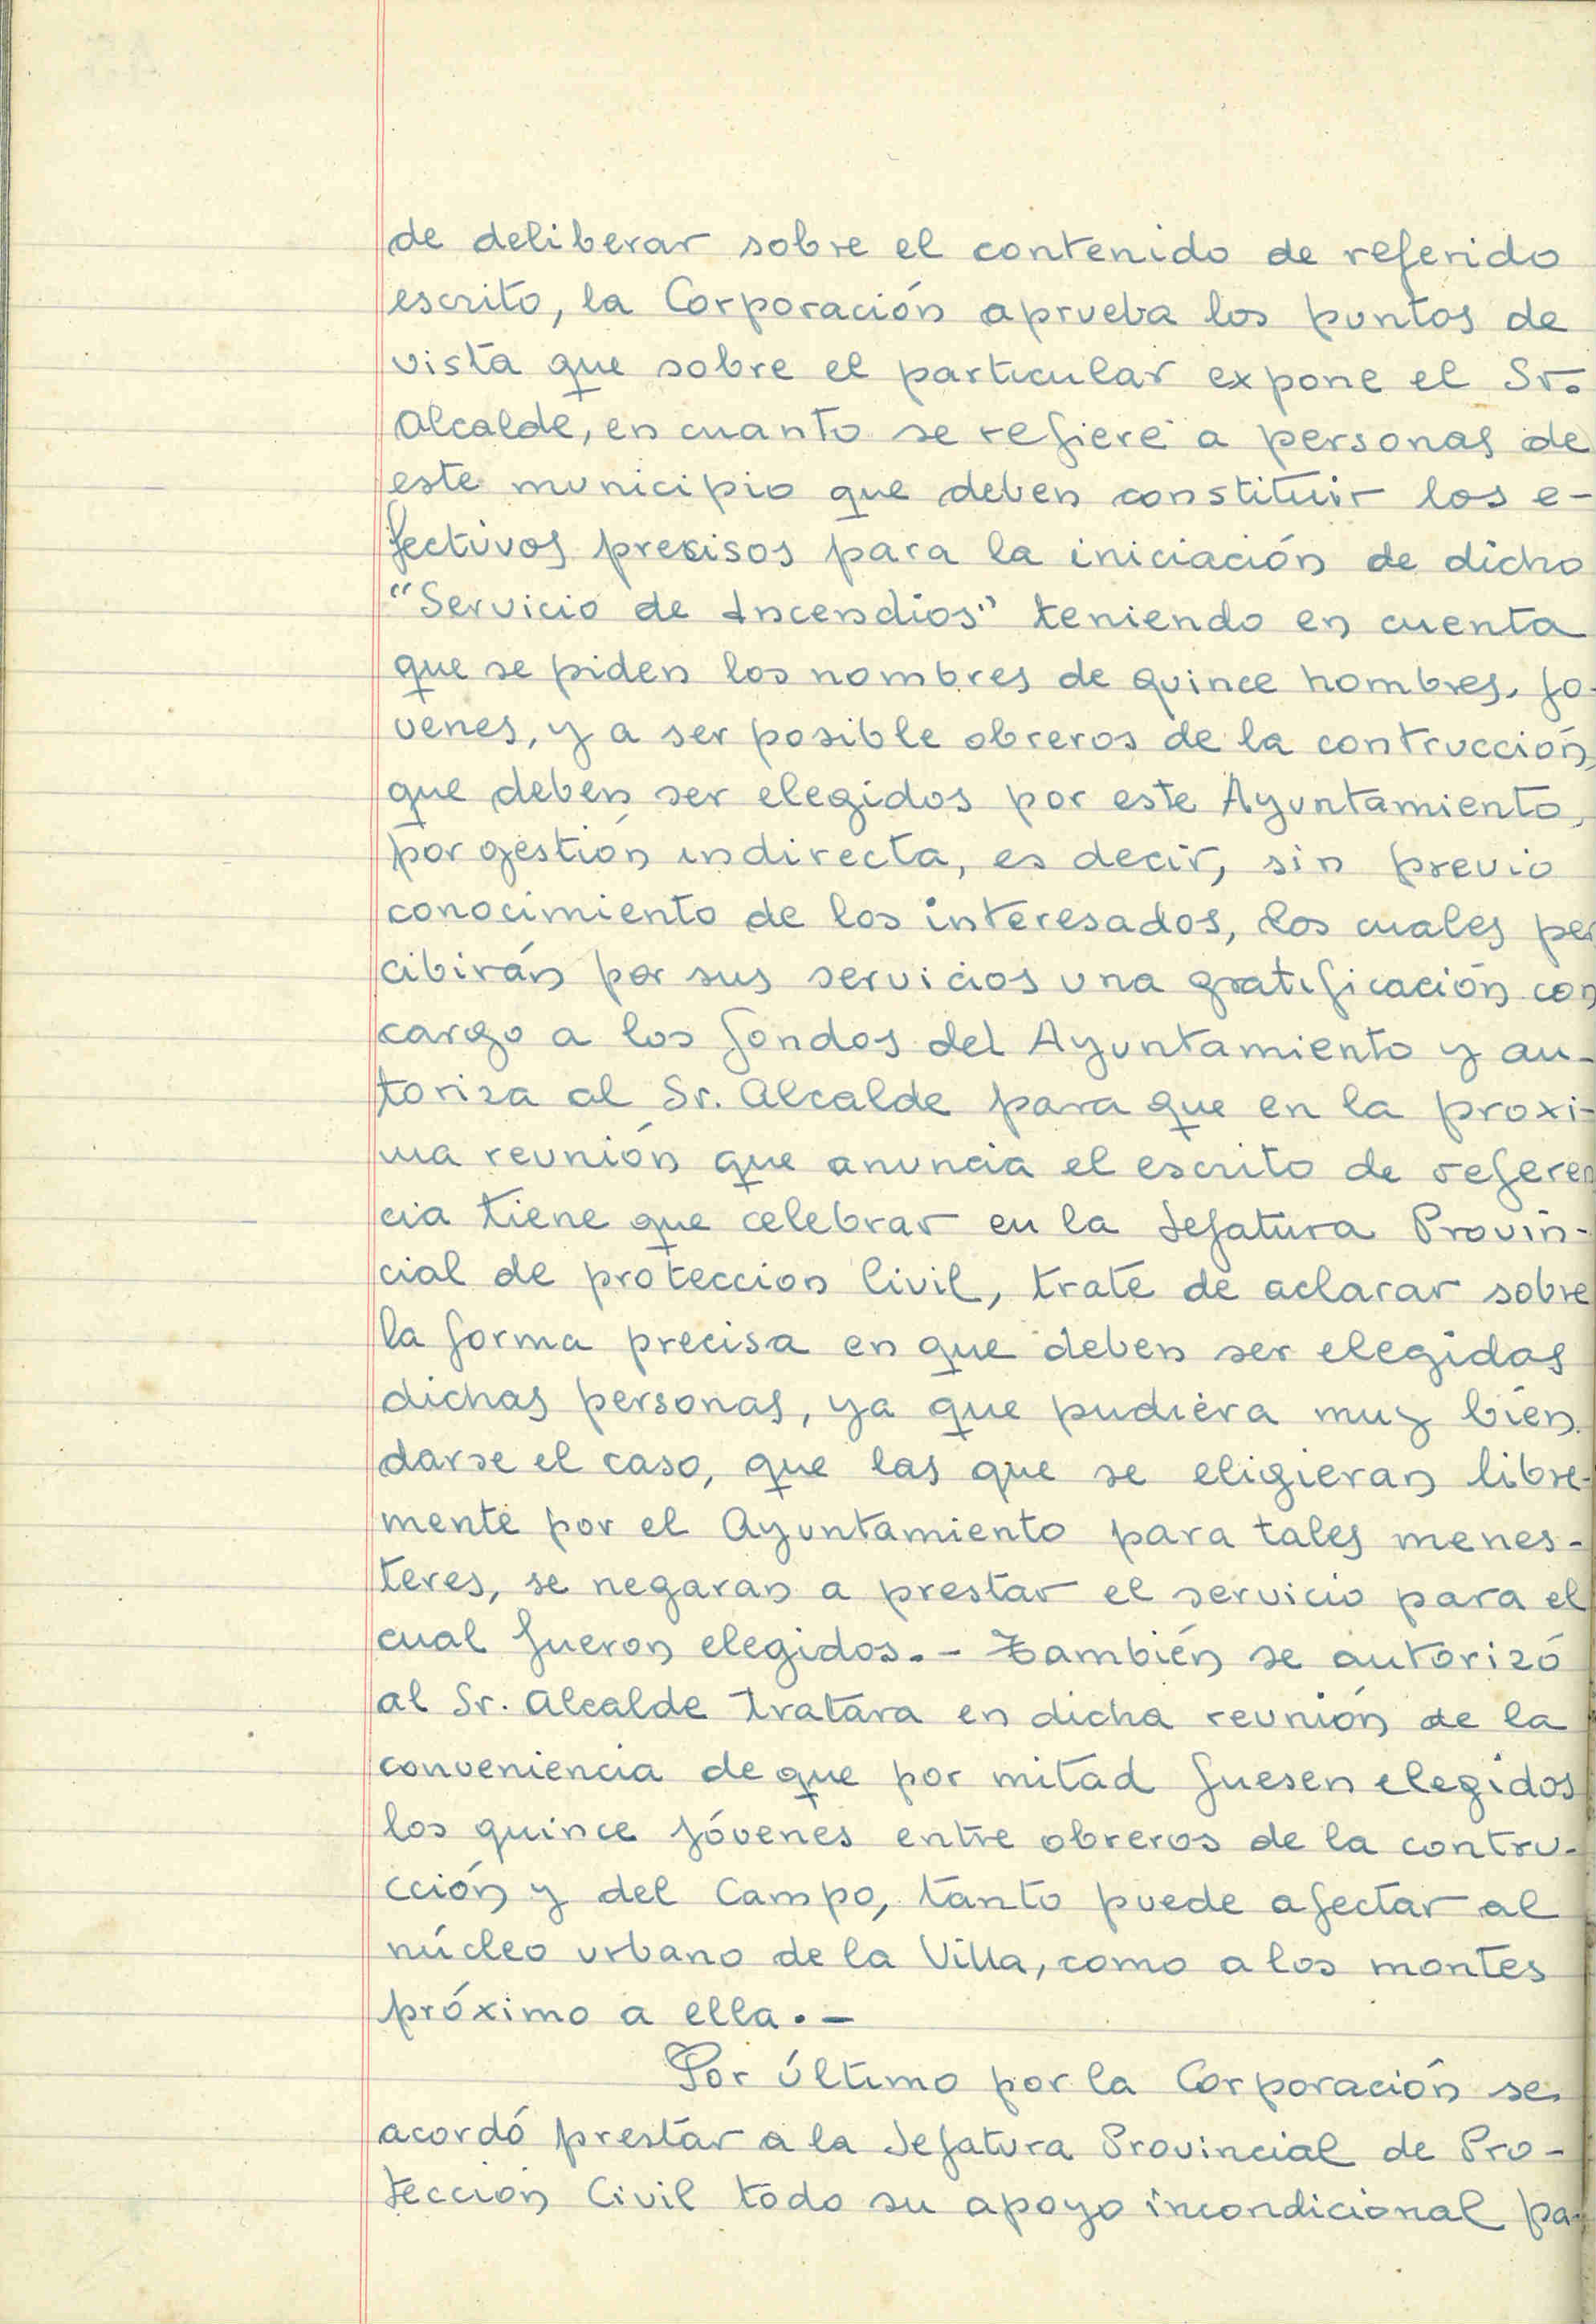 de deliberar sobre el contenido de referido
escrito, la Corporación aprueba los puntos de
vista que sobre el particular expone el Sr.
Alcalde, en cuanto se refiere a personas de
este municipio que deben constituir los e-
fectivos precisos para la iniciación de dicho
"Servicio de Incendios" teniendo en cuenta
que se piden los nombres de quince hombres, jo-
venes, y a ser posible obreros de la contrucción,
que deben ser elegidos por este Ayuntamiento,
por gestión indirecta, es decir, sin previo
conocimiento de los interesados, los cuales per
cibirán por sus servicios una gratificación con
cargo a los fondos del Ayuntamiento y au-
toriza al Sr. Alcalde para que en la proxi-
ma reunión que anuncia el escrito de referen
cia tiene que celebrar en la Jefatura Provin-
cial de proteccion Civil, trate de aclarar sobre
la forma precisa en que deben ser elegidas
dichas personas, ya que pudiera muy bien
darse el caso, que las que se eligieran libre-
mente por el Ayuntamiento para tales menes-
teres, se negaran a prestar el servicio para el
cual fueron elegidos.- También se autorizó
al Sr. Alcalde tratara en dicha reunión de la
conveniencia de que por mitad fuesen elegidos
los quince jóvenes entre obreros de la contru-
cción y del Campo, tanto puede afectar al
núcleo urbano de la Villa, como a los montes
próximo a ella.-
Por último por la Corporación se
acordó prestar a la Jefatura Provincial de Pro-
tección Civil todo su apoyo incondicional pa-